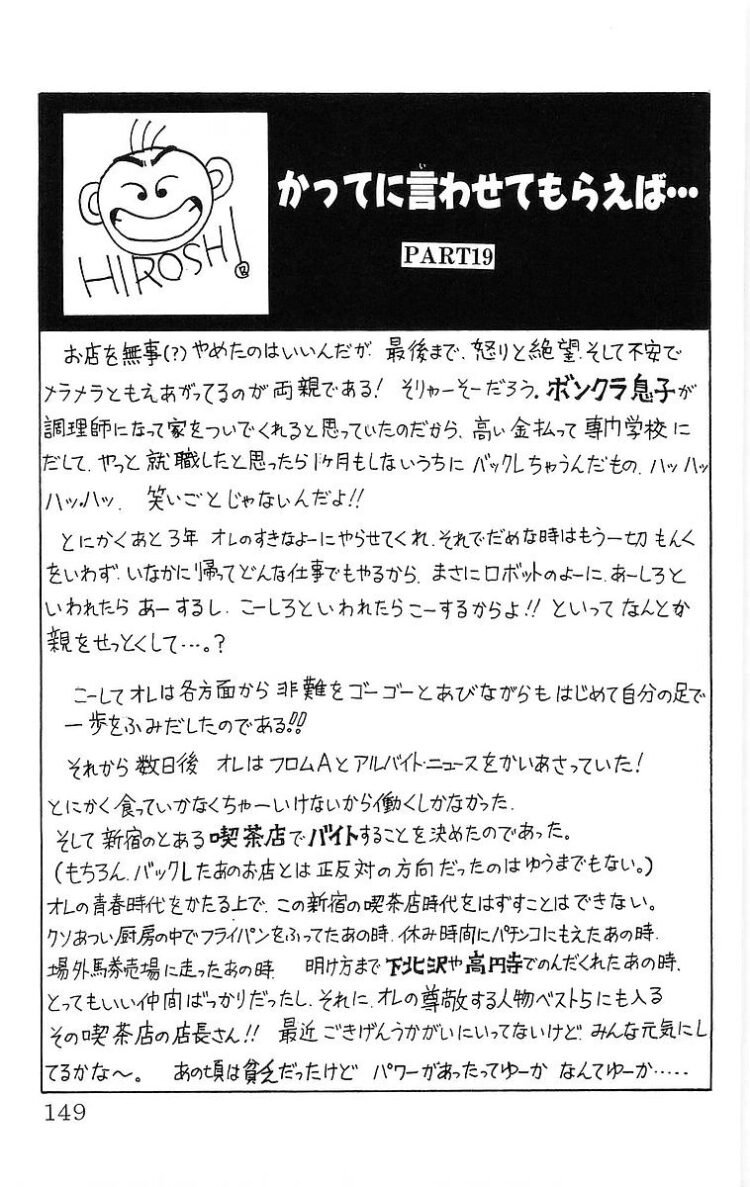 HIROSHI
®
かってに言わせてもらえば…
い
PART19
お店を無事(?)やめたのはいいんだが、最後まで、怒りと絶望、そして不安で
メラメラともえあがってるのが両親である! そりゃーそーだろう。ボンクラ息子が
調理師になって家をついでくれると思っていたのだから、高い金払って専門学校に
だして、やっと就職したと思ったら1ヶ月もしないうちにバックレちゃうんだもの、ハッハッ
ハッ・ハッ、 笑いごとじゃないんだよ!!
とにかくあと3年 オレのすきなよーにやらせてくれ、それでだめな時はもう一切もんく
をいわず、いなかに帰ってどんな仕事でもやるから、まさにロボットのよーに、あーしろと
いわれたらあーするし、こーしろといわれたらこーするからよ!! といってなんとか
親をせっとくして…。?
こーしてオレは各方面から非難をゴーゴーとあびながらもはじめて自分の足で
一歩をふみだしたのである!!
それから数日後 オレはフロムAとアルバイト・ニュースをかいあさっていた!
とにかく食っていかなくちゃーいけないから働くしかなかった。
そして新宿のとある喫茶店でバイトすることを決めたのであった。
(もちろん、バックレたあのお店とは正反対の方向だったのはゆうまでもない。)
オレの青春時代をかたる上で、この新宿の喫茶店時代をはずすことはできない。
クソあつい厨房の中でフライパンをふってたあの時、休み時間にパチンコにもえたあの時、
場外馬券売場に走ったあの時、 明け方まで下北沢や高円寺でのんだくれたあの時、
とってもいい仲間ばっかりだったし、それに、オレの尊敬する人物ベスト5にも入る
その喫茶店の店長さん!! 最近ごきげんうかがいにいってないけど、みんな元気にし
てるかな〜。 あの頃は貧乏だったけど パワーがあったってゆーか なんてゆーか……
149